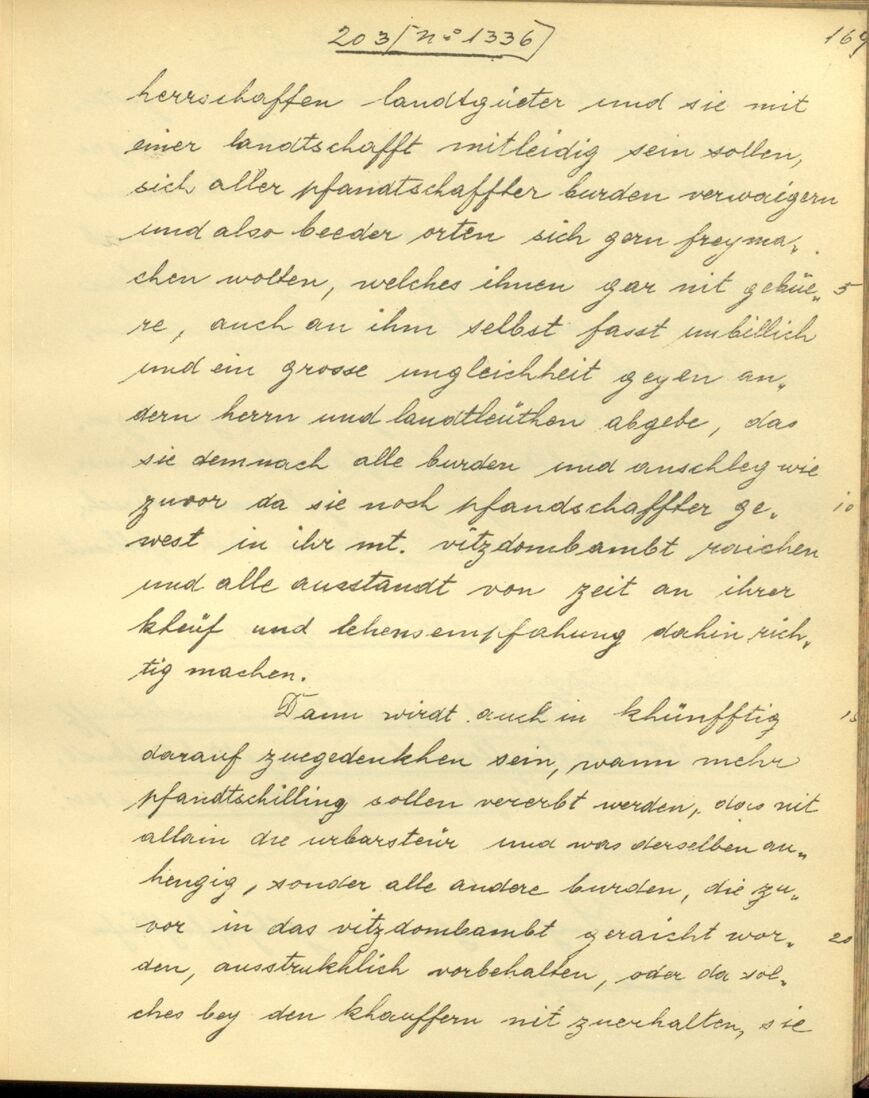 203/ n° 1336 169
herrschafften landtgüeter und sie mit
einer landtschafft mitleidig sein sollen,
sich aller pfandtschaffter burden verwaigern
und also beeder orten sich gern freyma„
chen wolten, welches ihnen gar nit gebüe„ 5
re, auch an ihm selbst fasst unbillich
und ein grosse ungleichheit gegen an„
dern herrn und landtleüthen abgebe, das
sie demnach alle burden und anschleg wie
zuvor da sie noch pfandschaffter ge„ 10
west in ihr mt. vitzdombambt raichen
und alle ausstandt von zeit an ihrer
kheüf und lehensempfahung dahin rich„
tig machen.
Dann wirdt auch in khünfftig 15
darauf zuegedenkhen sein, wann mehr
pfandtschilling sollen vererbt werden, das nit
allain die urbarsteür und was derselben an„
hengig, sonder alle andere burden, die zu„
vor in das vitzdombambt geraicht wor„ 20
den, ausstrukhlich vorbehalten, oder da sol„
ches bey den khauffern nit zuerhalten, sie